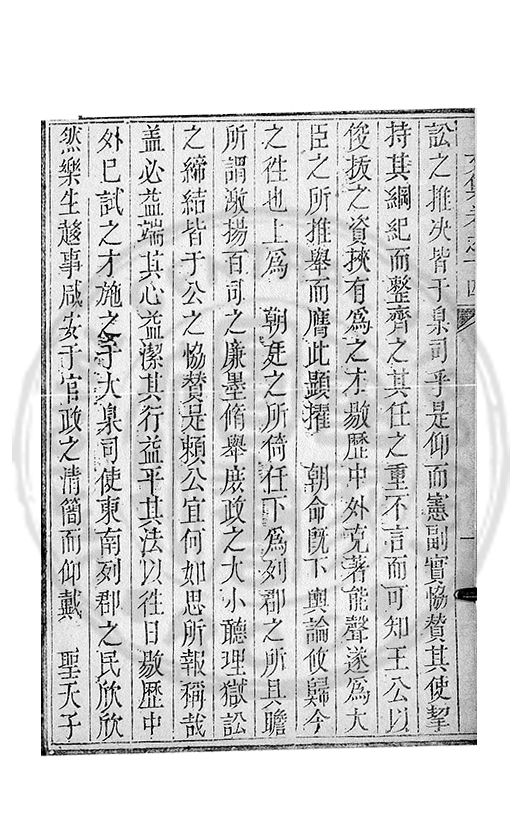 訟之推决皆于臬司乎是仰而憲副實恊賛其使挈
持其綱紀而整齊之其任之重不言而可知王公以
俊拔之資挾有爲之才敭歷中外克著能聲遂爲大
臣之所推舉而膺此顯擢 朝命既下輿論攸歸今
之徃也上爲 朝廷之所倚任下爲列郡之所具瞻
所謂激揚百司之廉墨脩舉庻政之大小聽理獄訟
之締結皆于公之恊賛是頼公宜何如思所報稱哉
盖必益端其心益潔其行益平其法以徃日敭歷中
外已試之才施之于大臬司使東南列郡之民欣欣
然樂生趍事咸安于官政之清簡而仰戴 聖天子